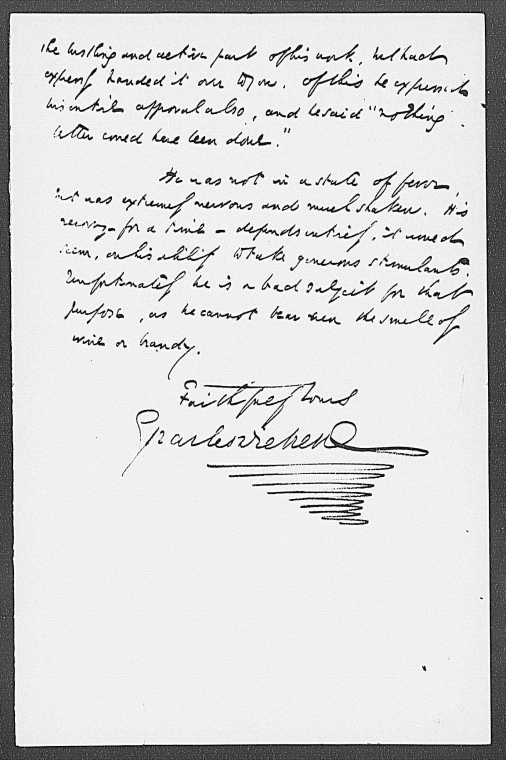 the bustling and active part of his work, but had
expressly handed it over to you. Of this he expressed
his entire approval also, and he said "nothing
better could have been done."
He was not in a state of fever,
but was extremely nervous and much shaken. His
recovery – for a time – depends entirely, it would
seem, on his ability to take generous stimulants.
Unfortunately he is a bad subject for that
purpose, as he cannot bear even the smell of
wine or brandy.
Faithfully Yours
Charles Dickens